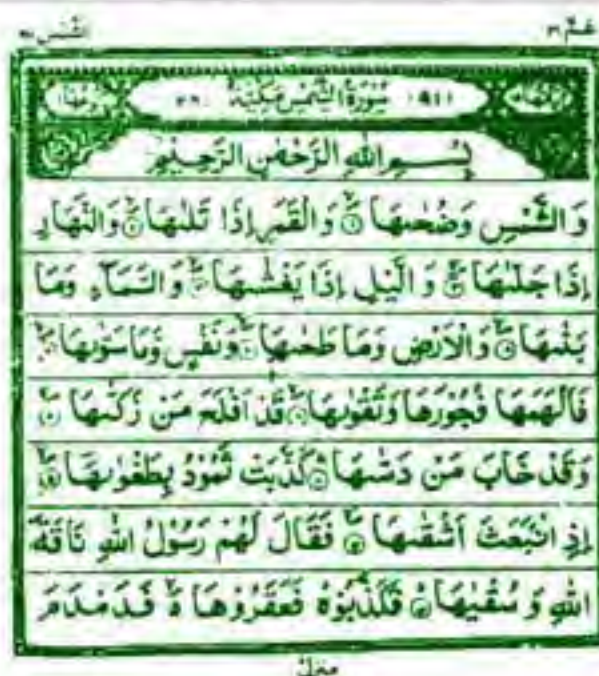 الشمس ٩١
عم ٣٠
(٩١) سُوْرَةُ الشَّمْسِ مَكِّيَّةٌ
بِسْمِ اللّٰهِ الرَّحْمٰنِ الرَّحِيْمِ
وَالشَّمْسِ وَضُحٰىهَا ۙ۱ وَالْقَمَرِ اِذَا تَلٰىهَا ۙ۲ وَالنَّهَارِ
اِذَا جَلّٰىهَا ۙ۳ وَالَّيْلِ اِذَا يَغْشٰىهَا ۙ۴ وَالسَّمَآءِ وَمَا
بَنٰىهَا ۙ۵ وَالْاَرْضِ وَمَا طَحٰىهَا ۙ۶ وَنَفْسٍ وَّمَا سَوّٰىهَا ۙ۷
فَاَلْهَمَهَا فُجُوْرَهَا وَتَقْوٰىهَا ۙ۸ قَدْ اَفْلَحَ مَنْ زَكّٰىهَا ۙ۹
وَقَدْ خَابَ مَنْ دَسّٰىهَا ۱۰ كَذَّبَتْ ثَمُوْدُ بِطَغْوٰىهَا ۙ۱۱
اِذِ انْۢبَعَثَ اَشْقٰىهَا ۙ۱۲ فَقَالَ لَهُمْ رَسُوْلُ اللّٰهِ نَاقَةَ
اللّٰهِ وَسُقْيٰهَا ۱۳ فَكَذَّبُوْهُ فَعَقَرُوْهَا ۙ فَدَمْدَمَ
منزل